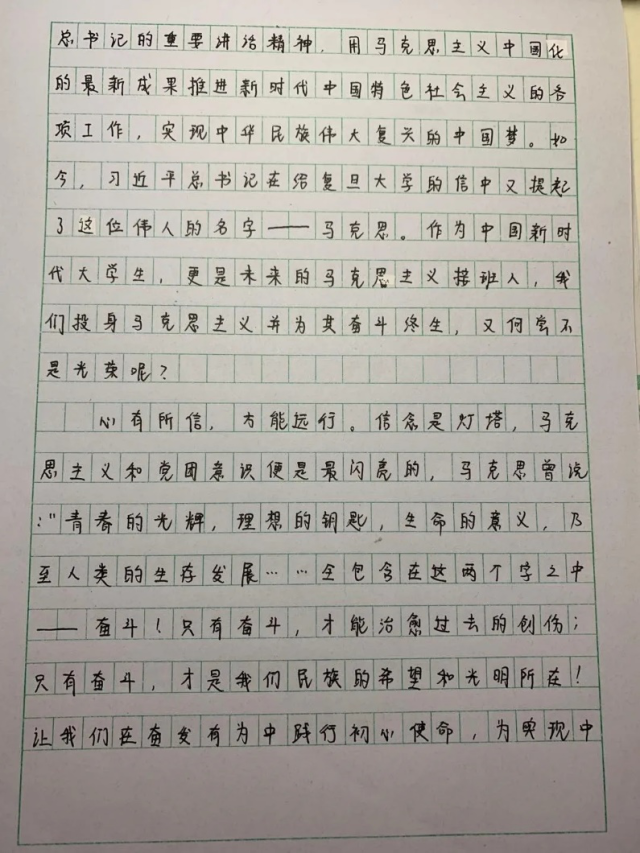 总书记的重要讲话精神，用马克思主义中国化
的最新成果推进新时代中国特色社会主义的各
项工作，实现中华民族伟大复兴的中国梦。如
今，习近平总书记在给复旦大学的信中又提起
了这位伟人的名字——马克思。作为中国新时
代大学生，更是未来的马克思主义接班人，我
们投身马克思主义并为其奋斗终生，又何尝不
是光荣呢？
心有所信，方能远行。信念是灯塔，马克
思主义和党团意识便是最闪亮的，马克思曾说
："青春的光辉，理想的钥匙，生命的意义，乃
至人类的生存发展……全包含在这两个字之中
——奋斗！只有奋斗，才能治愈过去的创伤；
只有奋斗，才是我们民族的希望和光明所在！
让我们在奋发有为中践行初心使命，为实现中